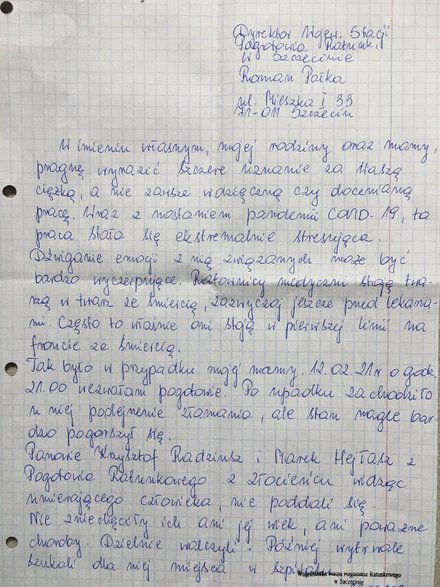 Dyrektor Wojew. Stacji
Pogotowia Ratunk.
w Szczecinie
Roman Pałka
ul. Mieszka I 33
71-011 Szczecin
W imieniu własnym, mojej rodziny oraz mamy,
pragnę wyrazić szczere uznanie za Waszą
ciężką, a nie zawsze wdzięczną czy docenianą
pracę. Wraz z nastaniem pandemii COVID-19, ta
praca stała się ekstremalnie stresująca.
Dźwiganie emocji z nią związanych może być
bardzo wyczerpujące. Ratownicy medyczni stają twa-
rzą w twarz ze śmiercią, zazwyczaj jeszcze przed lekarza-
mi. Często to właśnie oni stoją w pierwszej linii na
froncie ze śmiercią.
Tak było w przypadku mojej mamy. 12.02.21r o godz.
21.00 wezwałam pogotowie. Po upadku zachodziło
u niej podejrzenie złamania, ale stan nagle bar-
dzo pogorszył się.
Panowie Krzysztof Radziusz i Marek Hejłasz z
Pogotowia Ratunkowego z Złocieńca widząc
umierającego człowieka, nie poddali się.
Nie zniechęciły ich ani jej wiek, ani poważne
choroby. Dzielnie walczyli. Później wytrwale
szukali dla niej miejsca w szpitalu
Wojewódzka Stacja Pogotowia Ratunkowego
w Szczecinie